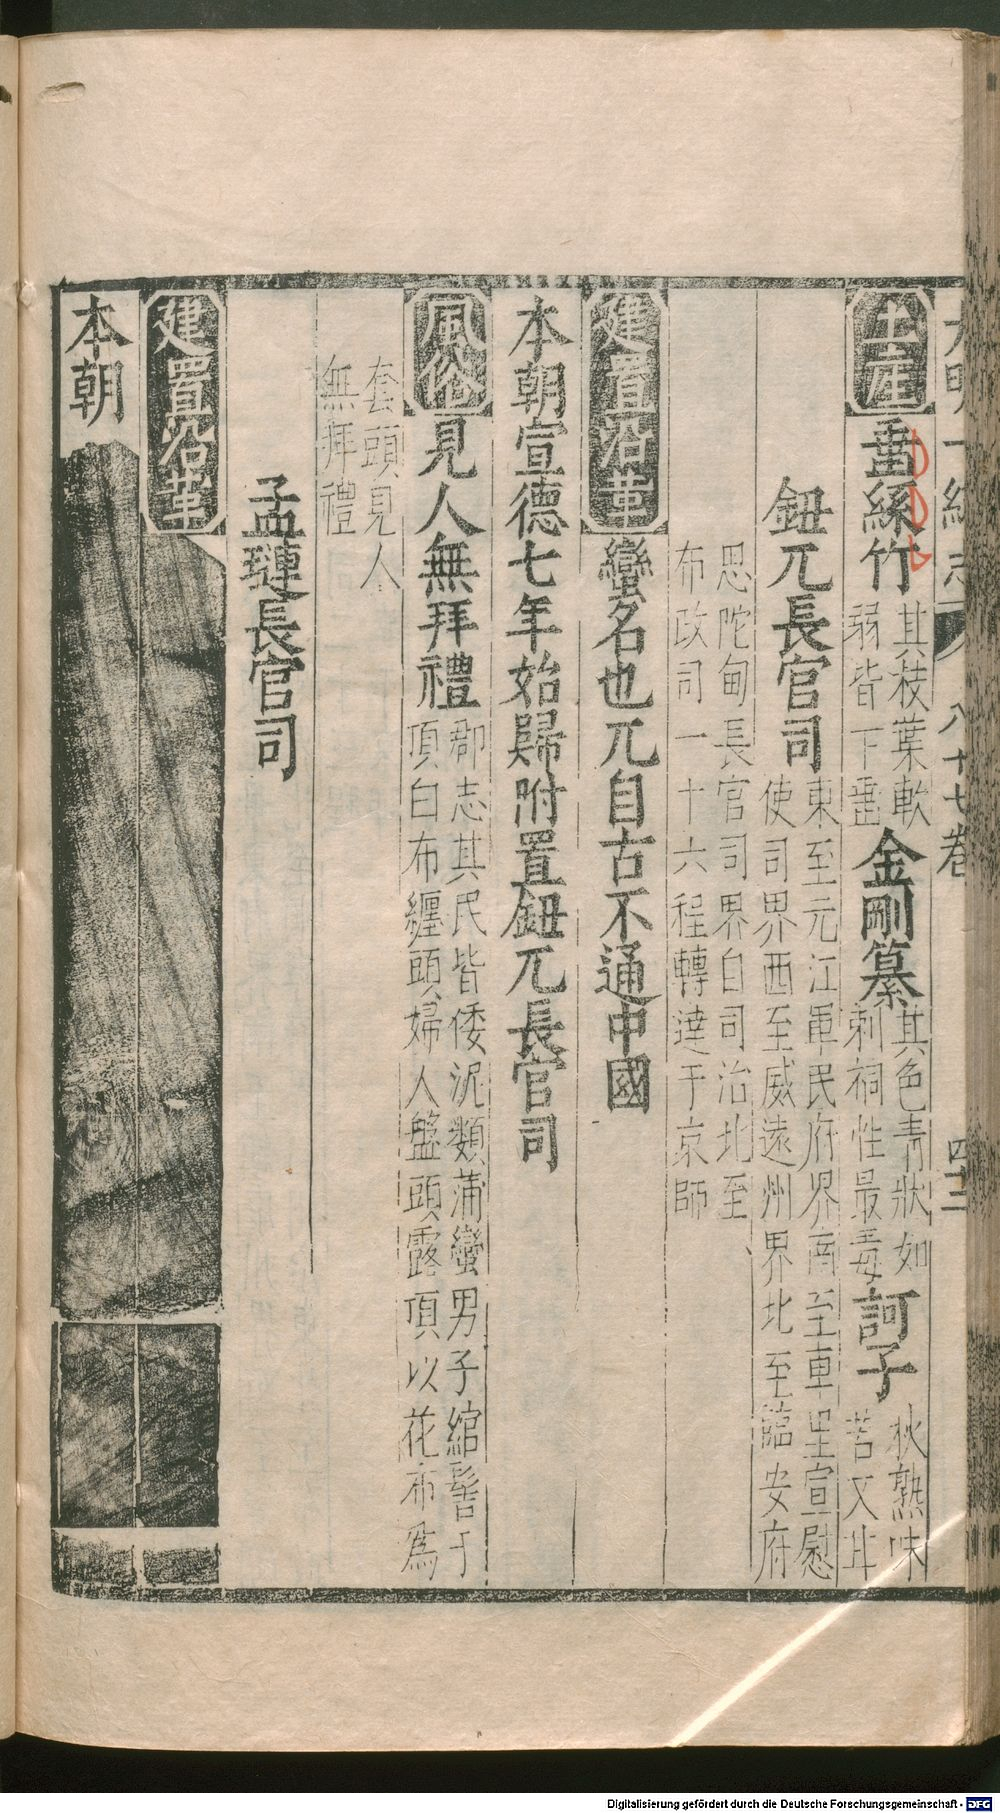 大明一統志 八十七卷 四十三
土産 垂絲竹 其枝葉軟
弱皆下垂 金剛纂 其色青狀如
刺桐性最毒 訶子 秋熟味
苦又甘
鈕兀長官司 東至元江軍民府界南至車里宣慰
使司界西至威遠州界北至臨安府
思陀甸長官司界自司治北至
布政司一十六程轉達于京師
建置沿革 蠻名也兀自古不通中國
本朝宣德七年始歸附置鈕兀長官司
風俗 見人無拜禮 郡志其民皆倭泥類蒲蠻男子綰髻于
頂白布纏頭婦人盤頭露頂以花布爲
套頭見人
無拜禮
孟璉長官司
建置沿革
本朝
Digitalisierung gefördert durch die Deutsche Forschungsgemeinschaft - DFG